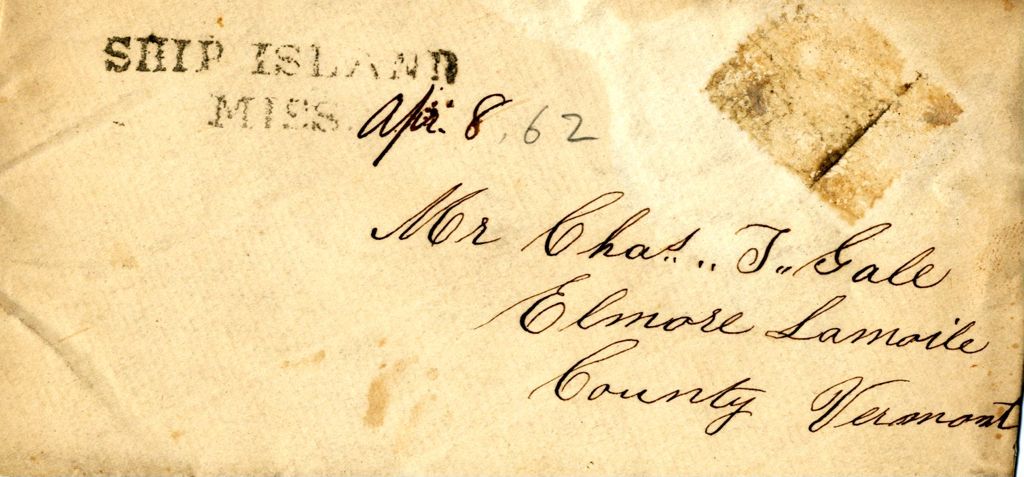 SHIP ISLAND
MISS. Apr. 8, 62
Mr Chas.. T.. Gale
Elmore Lamoile
County Vermont